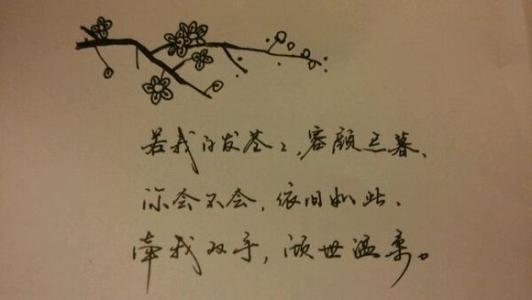 若我白发苍々，容颜已暮、
你会不会，依旧如此、
牵我双手，倾世温柔。